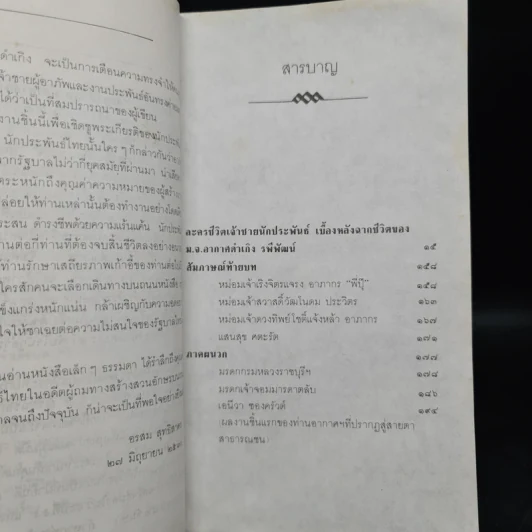 ดำเกิง จะเป็นการเตือนความทรงจำให้
จ้าชายผู้อาภัพและงานประพันธ์อันทรง
ได้ว่าเป็นที่สมปรารถนาของผู้เขียน
งานชิ้นนี้เพื่อเชิดชูพระเกียรติของนักประ
นักประพันธ์ไทยนั้นใคร ๆ ก็กล่าวกันว่า
ากรัฐบาลไม่ว่ากี่ยุคสมัยที่ผ่านมา
ตระหนักถึงคุณค่าความหมายของผู้สร้าง
ล่อยให้ท่านเหล่านั้นต้องทำงานอย่าง
ระสน ดำรงชีพด้วยความแร้นแค้น
านต่อกี่ท่านที่ต้องจบสิ้นชีวิตลงอย่าง
ท่านรักษาเสถียรภาพเก้าอี้ของท่านต่อไป
ใครสักคนจะเลือกเดินทางบนถนนหนังสือ
ข็งแกร่งหนักแน่น กล้าเผชิญกับความ
ใจให้ชาเฉยต่อความไม่สนใจของรัฐบาล
นอ่านหนังสือเล็ก ๆ ธรรมดา ได้รำลึกถึง
ธ์ไทยในอดีตผู้ถมทางสร้างสวนอักษร
าลจนถึงปัจจุบัน ก็น่าจะเป็นที่พอใจอย่าง
อรสม
๒๗ มิถุนายน
สารบาญ
ละครชีวิตเจ้าชายนักประพันธ์ เบื้องหลังฉากชีวิตของ
ม.จ.อากาศดำเกิง รพีพัฒน์ ๑๕
สัมภาษณ์ท้ายบท ๑๕๘
หม่อมเจ้าเริงจิตรแจรง อาภากร "พี่ปุ๊" ๑๕๘
หม่อมเจ้าสวาสดิ์วัฒโนดม ประวิตร ๑๖๓
หม่อมเจ้าดวงทิพย์โชติ์แจ้งหล้า อาภากร ๑๖๗
แสนสุข คตะรัต ๑๗๑
ภาคผนวก ๑๗๗
มรดกกรมหลวงราชบุรีฯ ๑๗๘
มรดกเจ้าจอมมารดาตลับ ๑๘๖
เอนีวา ซองครัวด์ ๑๙๔
(ผลงานชิ้นแรกของท่านอากาศฯที่ปรากฏสู่สายตา
สาธารณชน)